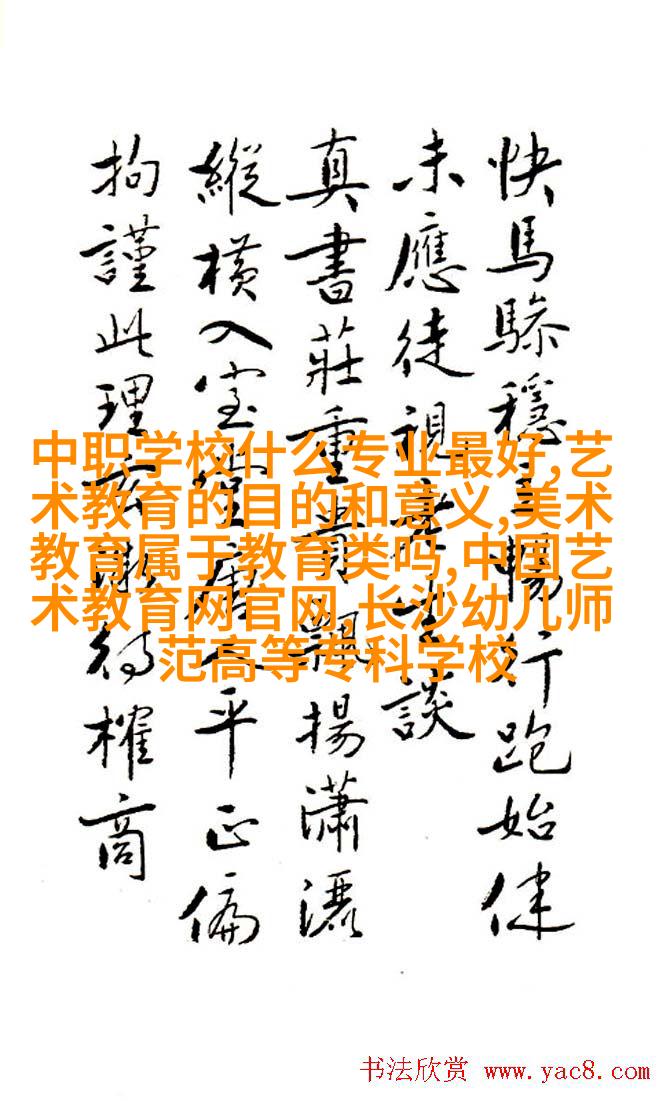 快馬穩暢行跑始
未應徒視談
真書莊重飄揚瀟灑
縱橫入室平正偏
拘謹此理得榷商
中职学校什么专业最好,艺
术教育的目的和意义,美术
教育属于教育类吗,中国艺
术教育网官网,长沙幼儿师
范高等专科学校
书法欣赏 www.yac8.com